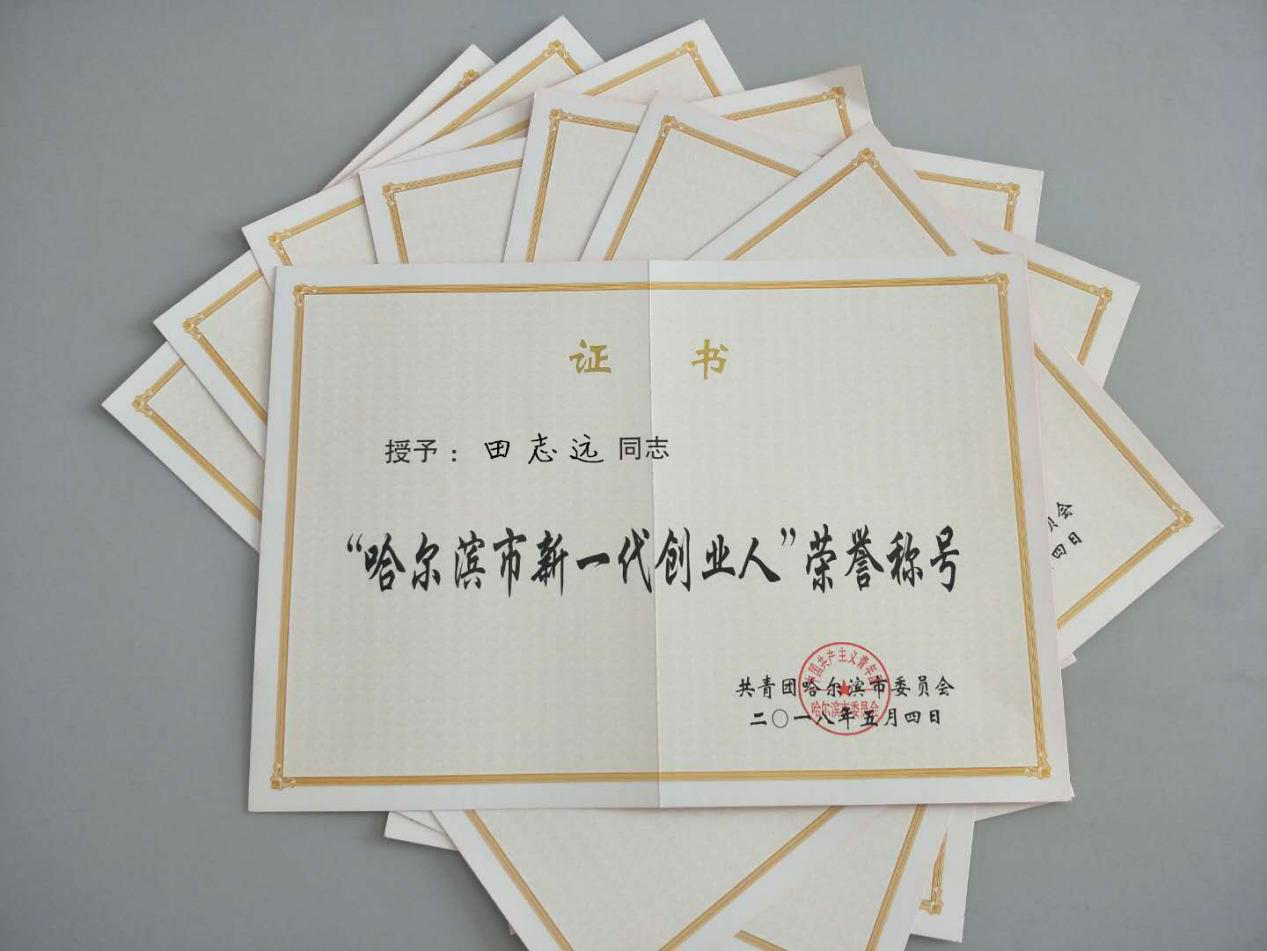 证 书
授予：田志远同志
“哈尔滨市新一代创业人”荣誉称号
共青团哈尔滨市委员会
二〇一八年五月四日
中国共产主义青年团
哈尔滨市委员会
员会
四日